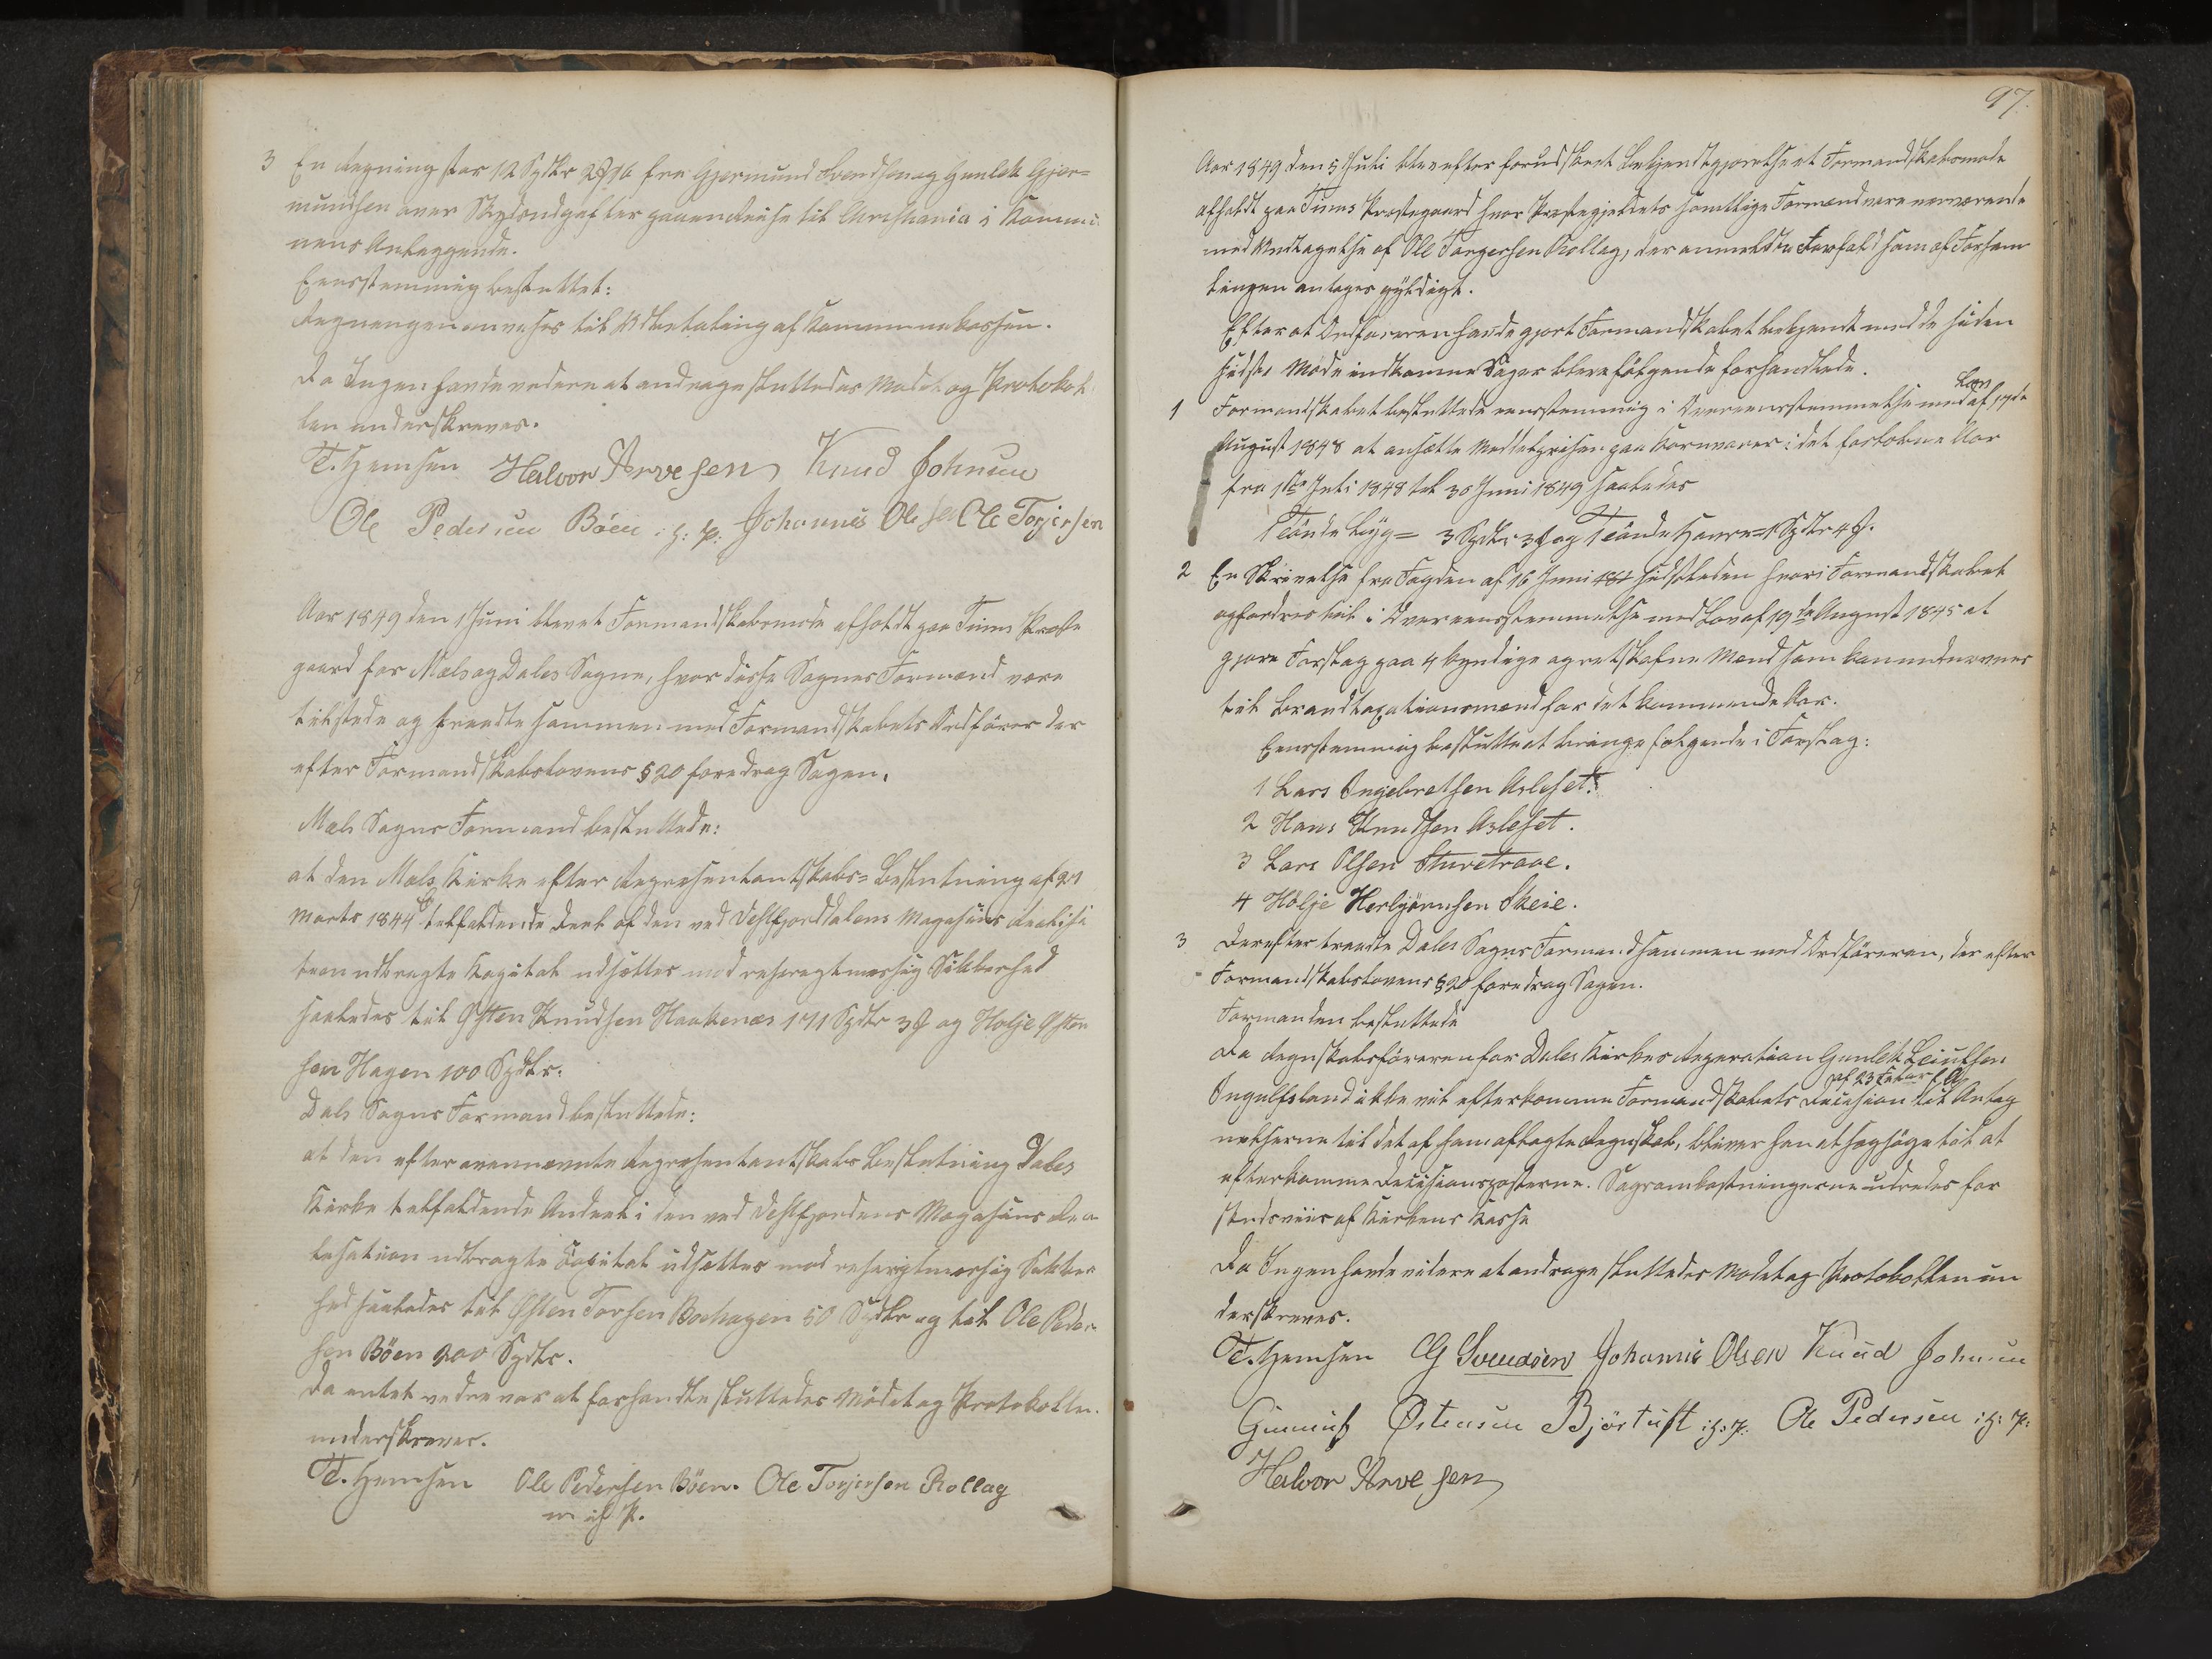 3 En Regning stor 12 Spdlr 2 ß 16 fra Gjermund Svendsen og Gunlek Gjer=
mundsen over Skydsudgifter paa en Reise til Christiania i Kommu
nens Anliggende.
Eensstemmig besluttet:
Regningen anvises til Udbetaling af Kommunekassen.
Da Ingen havde videre at andrage sluttedes Mødet og Protokol
len underskreves.
T. Hemsen Halvor Arvesen Knud Johnsen
Ole Pedersen Böen i: h: p: Johannis Olesen Ole Torjersen
Aar 1849 den 1 Juni blev et Formandskabsmøde afholdt paa Tinns Præste
gaard for Mæls og Dales Sogne, hvor disse Sognes Formænd vare
tilstede og traadte sammen med Formandskabets Ordfører der
efter Formandskabslovens § 20 foredrog Sagen.
Mæls Sogns Formænd besluttede:
at den Mæls Kirke efter Repræsentantskabs=Beslutning af 21
Marts 1844 tilfaldende Deel af den ved Vestfjorddalens Magasins Realisa
tion udbragte Kapital udsættes mod reskriptmæssig Sikkerhed
saaledes til Østen Knudsen Haakenæs 171 Spdlr 3 ß og Holje Østen
sen Hagen 100 Spdlr.
Dals Sogns Formænd besluttede:
at den efter ovennævnte Repræsentantskabs Beslutning Dales
Kirke tilfaldende Andeel i den ved Vestfjordens Magasins Rea
lisation udbragte Capital udsættes mod reskriptmæssig Sikker
hed saaledes til Østen Torsen Bøehagen 50 Spdlr og til Ole Peder
sen Böen 200 Spdlr.
Da intet videre var at forhandle sluttedes Mødet og Protokollen
underskreves.
T. Hemsen Ole Pedersen Böen. Ole Torjersen Rollag
m i h P.
97.
Aar 1849 den 5 Juli blev efter forudskeet Bekjendtgjørelse et Formandskabsmøde
afholdt paa Tinns Præstegaard hvor Præstegjeldets samtlige Formænd vare nærværende
med Undtagelse af Ole Torgersen Rollag, der anmeldte Forfald som af Forsam
lingen antages gyldigt.
Efter at Ordføreren havde gjort Formandskabet bekjendt med de siden
sidste Møde indkomne Sager bleve følgende forhandlede.
1 Formandskabet besluttede eensstemmig i Overeensstemmelse med Lov af 17de
August 1848 at ansætte Middelprisen paa Kornvarer i det forløbne Aar
fra 1ste Juli 1848 til 30 Juni 1849 saaledes
1 Tønde Byg = 3 Spdlr 3 ß og 1 Tønde Havre = 1 Spdlr 4 ß.
2 En Skrivelse fra Fogden af 16 Juni sidstleden hvori Formandskabet
opfordres til i Overeensstemmelse med Lov af 19de August 1845 at
gjøre Forslag paa 4 kyndige og retskafne Mænd som kan udnævnes
til Brandtaxationsmænd for det kommende Aar.
Eensstemmig besluttet at bringe følgende i Forslag:
1 Lars Ingebretsen Asleset.
2 Hans Knudsen Asleset.
3 Lars Olsen Sturetrave.
4 Hölje Herbjørnsen Skeie.
3 Derefter traadte Dales Sogns Formænd sammen med Ordføreren, der efter
Formandskabslovens § 20 foredrog Sagen.
Formanden besluttede
Da Regnskabsføreren for Dales Kirkes Reparation Gunlek Leiulsen
Ingulfsland ikke vil efterkomme Formandskabets Decision af 23 Febr til Antag
nelserne til det af ham aflagte Regnskab, bliver han at sagsøge til at
efterkomme Decisionsposterne. Sagsomkostningerne udredes for
skudsviis af Kirkens Kasse
Da Ingen havde videre at andrage sluttedes Mødet og Protokollen un
derskreves.
T. Hemsen G Svendsen Johannis Olsen Knud Johnsen
Gunnuf Østensen Bjørtuft i h: p. Ole Pedersen i h: p:
Halvor Arvesen